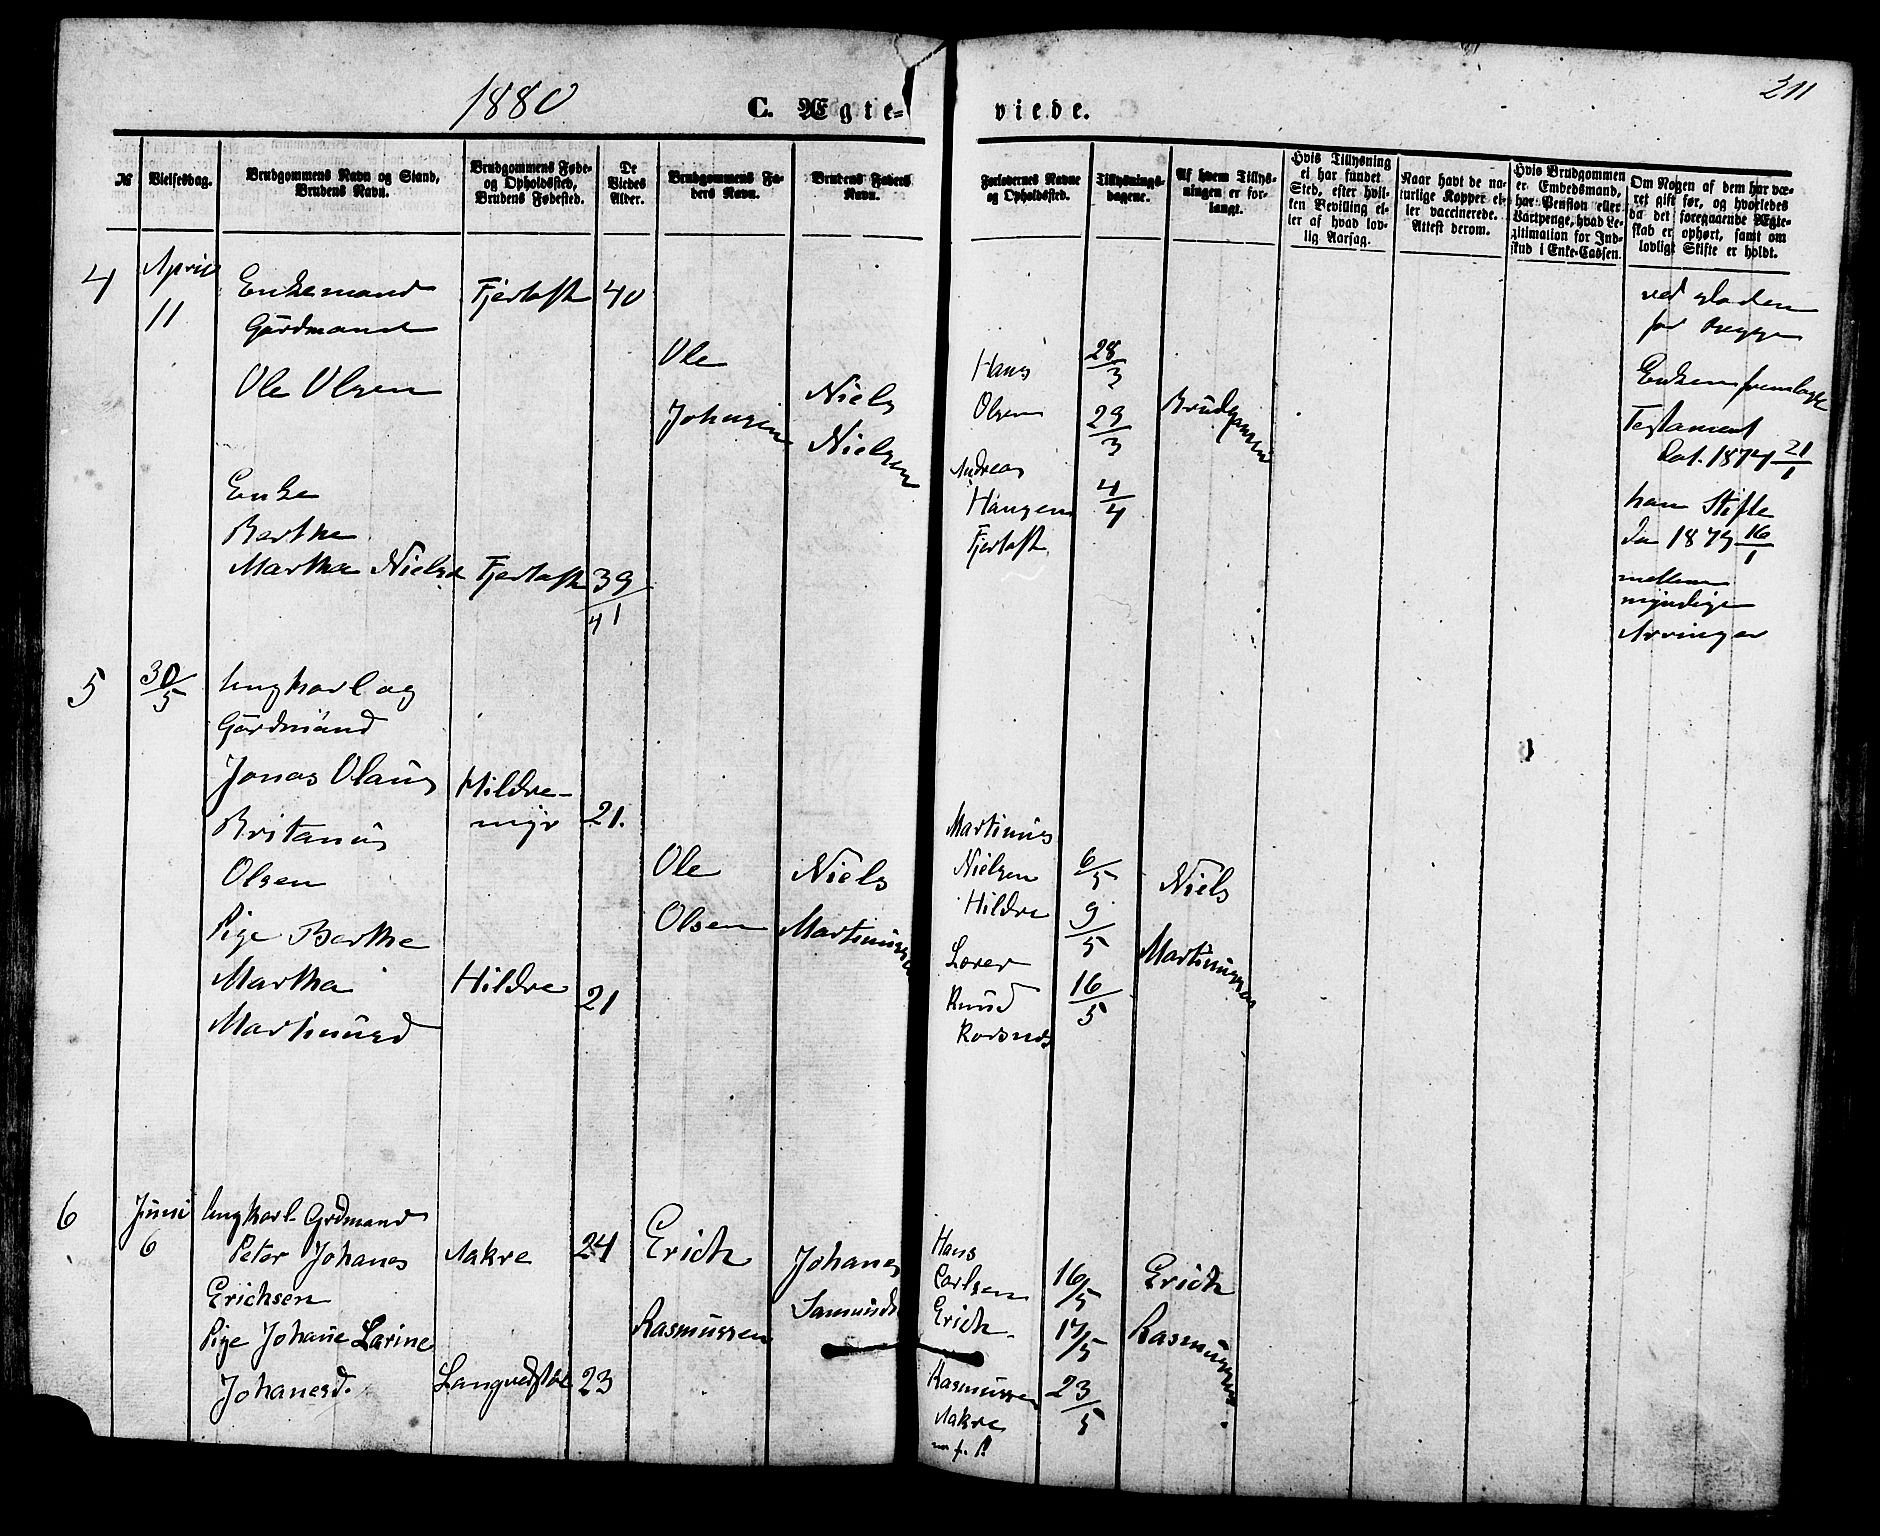 1880
C. Ægte-
viede.
211
№
Vielsesdag.
Brudgommens Navn og Stand,
Brudens Navn.
Brudgommens Føde-
og Opholdssted,
Brudens Fødested.
De
Viedes
Alder.
Brudgommens Fa-
ders Navn.
Brudens Faders
Navn.
Forlovernes Navne
og Opholdssted.
Tillysnings-
dagene.
Af hvem Tillys-
ningen er for-
langt.
Hvis Tillysning
ei har fundet
Sted, efter hvil-
ken Bevilling el-
ler af hvad lov-
lig Aarsag.
Naar havt de na-
turlige Kopper el-
ler vaccinerede.
Attest derom.
Hvis Brudgommen
er Embedsmand,
har Pension eller
Vartpenge, hvad Le-
gitimation for Ind-
skud i Enke-Cassen.
Om Nogen af dem har væ-
ret gift før, og hvorledes
da det foregaaende Ægte-
skab er ophørt, samt om
lovligt Skifte er holdt.
4
April
11
Enkemand
Gårdmand
Ole Olsen
Fjertoft
40
Ole
Johnsen
Niels
Nielsen
Enke
Berthe
Martha Nielsd
Fjertoft
39
41
Hans
Olsen
Andreas
Hansen
Fjertoft
28/3
29/3
4/4
Brudgommen
ved døden
for begge
Enken fremlagt
Testament
Dat. 1874 21/1
han Skifte
Da 1879 16/1
mellem
myndige
Arvinger
5
30/5
Ungkarl og
Gårdmand
Jonas Olaus
Britanus
Olsen
Hildre-
myr
21.
Ole
Olsen
Niels
Martinussen
Pige Berthe
Martha
Martinusd
Hildre
21
Martinus
Nielsen
Hildre
Lærer
Knud
Korsnes
6/5
9/5
16/5
Niels
Martinussen
6
Juni
6
Ungkarl Grdmand
Peter Johanes
Erichsen
Aakre
24
Erich
Rasmussen
Johanes
Samundsen
Pige Johane Larine
Johanesd.
Langvedstøl
23
Hans
Carlsen
Erich
Rasmussen
Aakre
16/5
17/5
23/5
Erich
Rasmussen